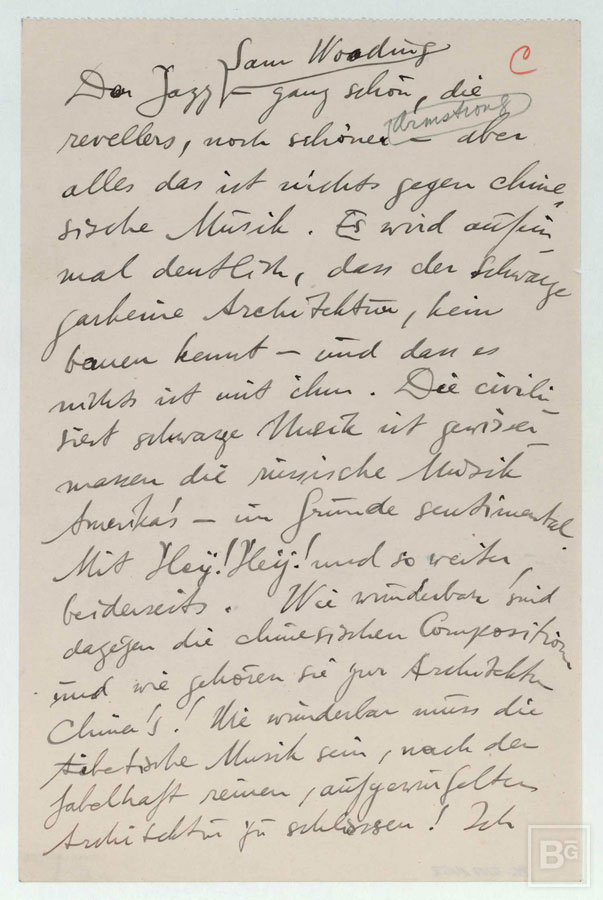 Sam Wooding
C
Der Jazz – ganz schön, die
Armstrong
revellers, noch schöner – aber
alles das ist nichts gegen chine-
sische Musik. Es wird auf ein-
mal deutlich, dass der schwarze
garkeine Architektur, kein
bauen kennt – und dass es
nichts ist mit ihm. Die civili-
siert schwarze Musik ist gewisser-
massen die russische Musik
Amerika's – im Grunde sentimental.
Mit Hey! Hey! und so weiter,
beiderseits. Wie wunderbar sind
dagegen die chinesischen Compositionen
und wie gehören sie zur Architektur
China's! Wie wunderbar muss die
tibetische Musik sein, nach der
fabelhaft reinen, aufgewürfelten
Architektur zu schliessen! Ich
BG